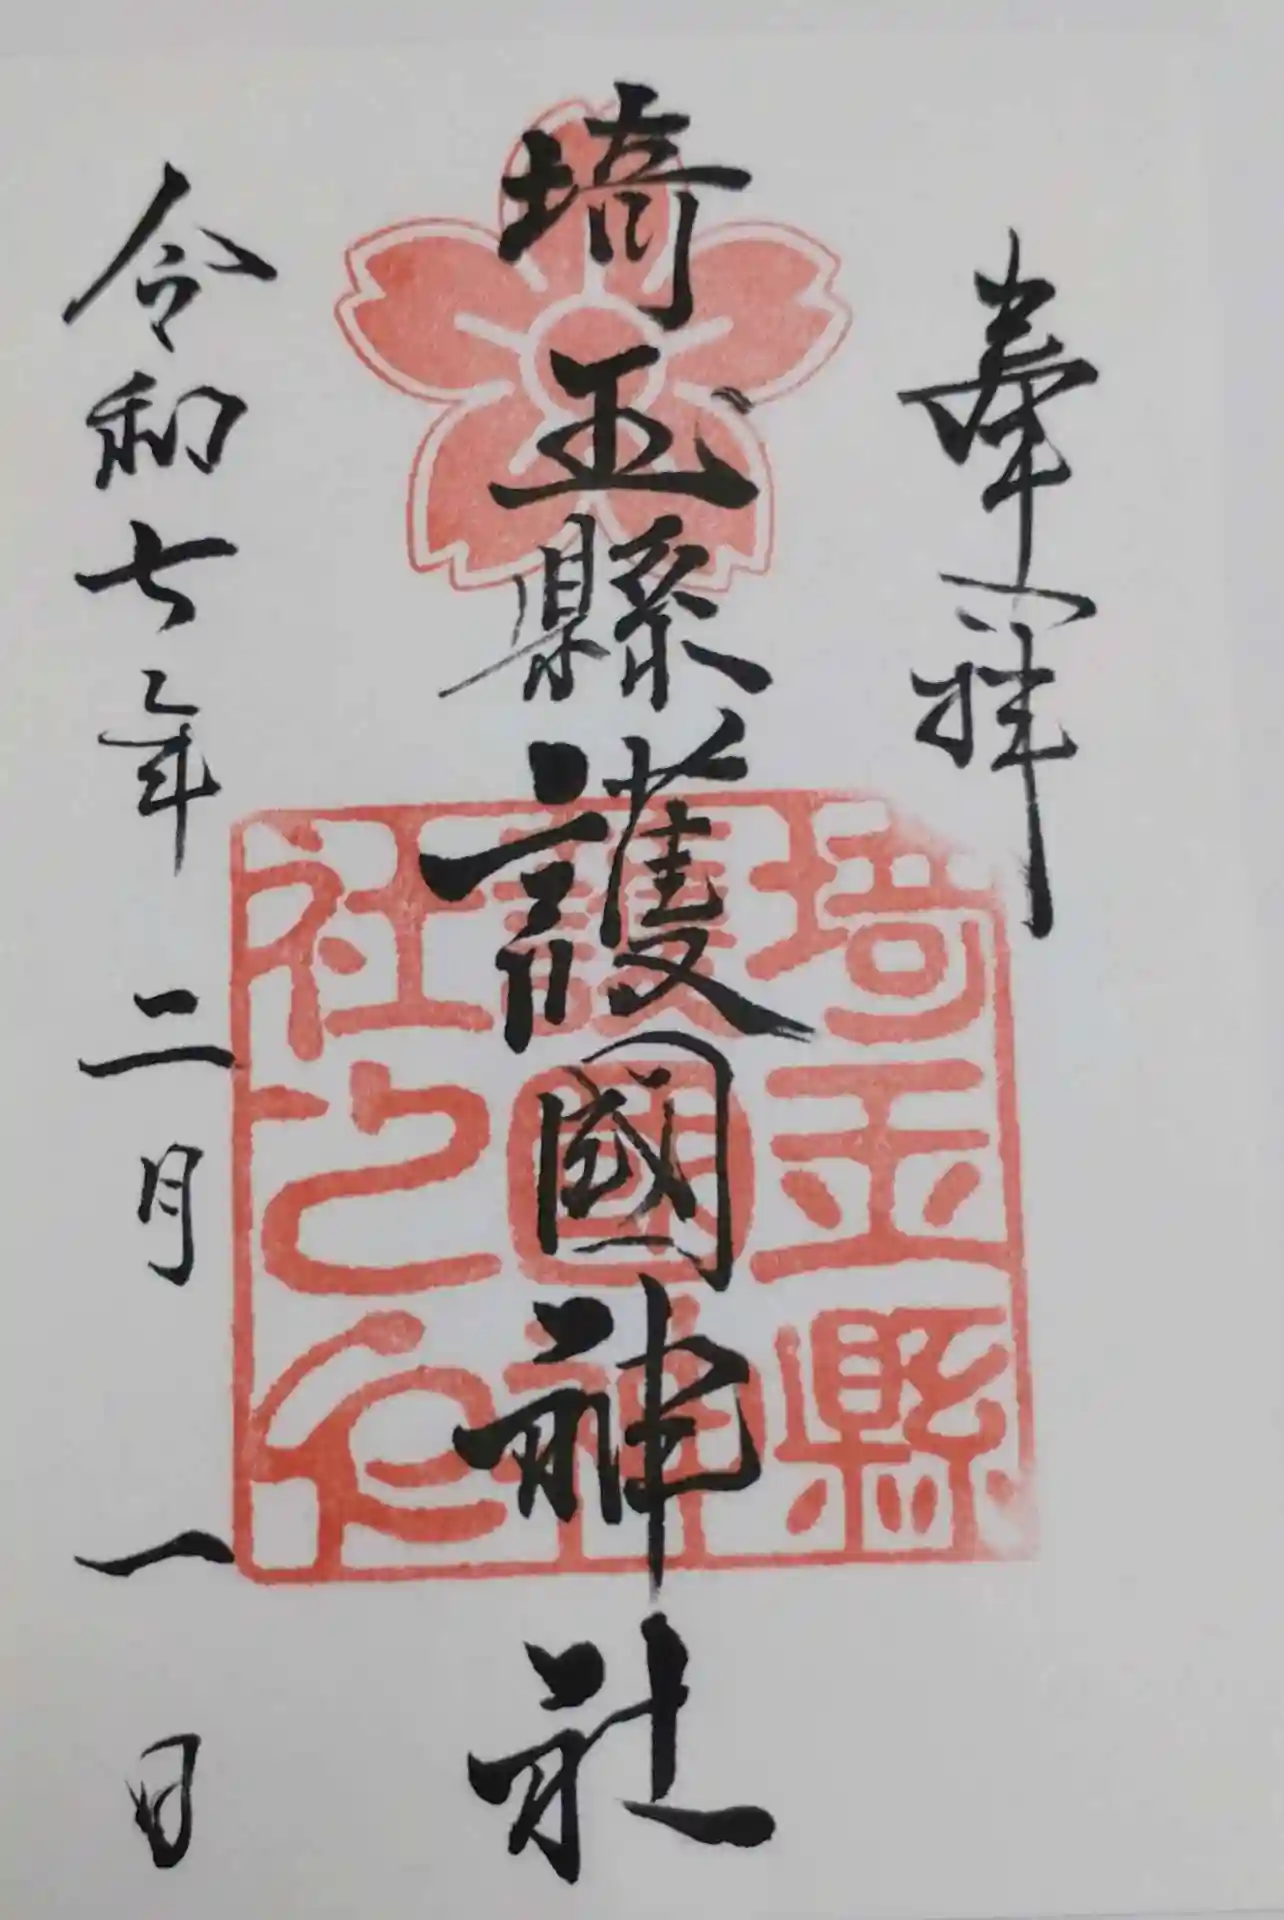 奉拝
埼玉縣護國神社
埼玉縣
護國神
社之印
令和七年二月一日